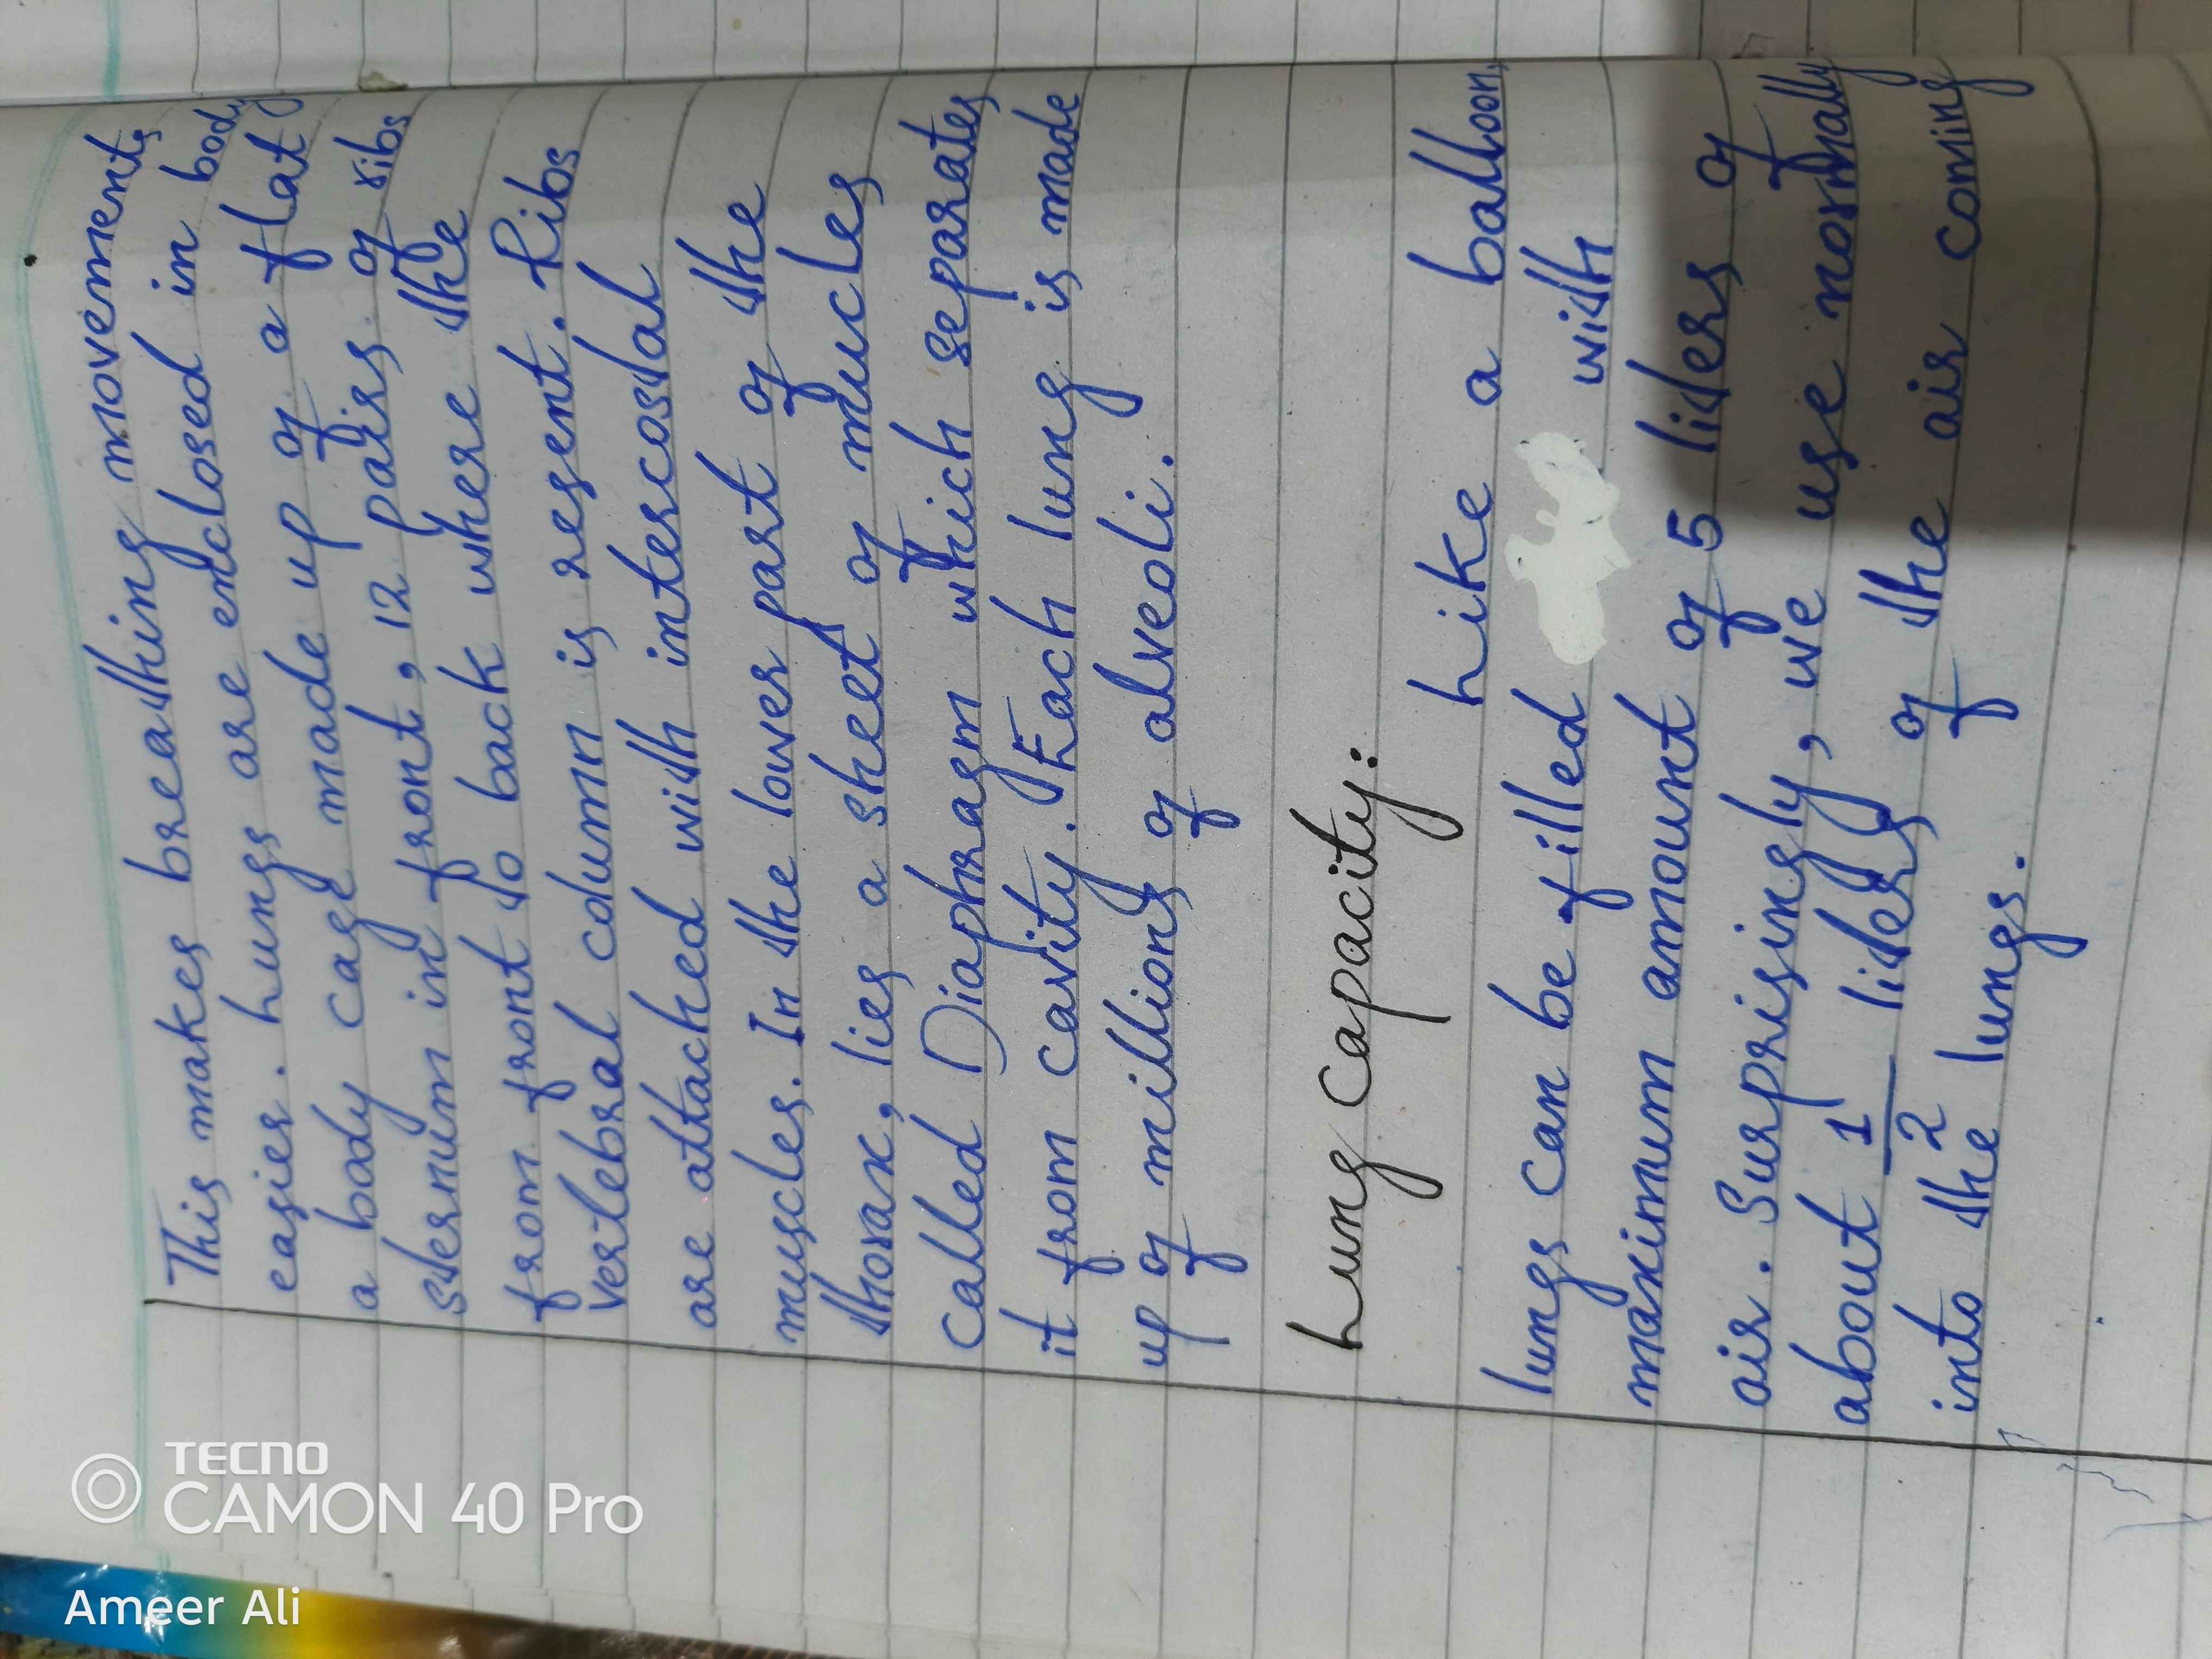 This makes breathing movements
easier. Lungs are enclosed in body
a body cage made up of a flat
sternum in front, 12 pairs of ribs
from front to back where the
vertebral column is resent. Ribs
are attacked with intercostal
muscles. In the lower part of the
thorax, lies a sheet of mucles
called Diaphragm which separates
it from cavity. Each lung is made
up of millions of alveoli.
Lung Capacity:
Like a balloon,
lungs can be filled with
maximum amount of 5 liters of
air. Surprisingly, we use normally
about 1/2 liters of the air coming
into the lungs.
TECNO
CAMON 40 Pro
Ameer Ali